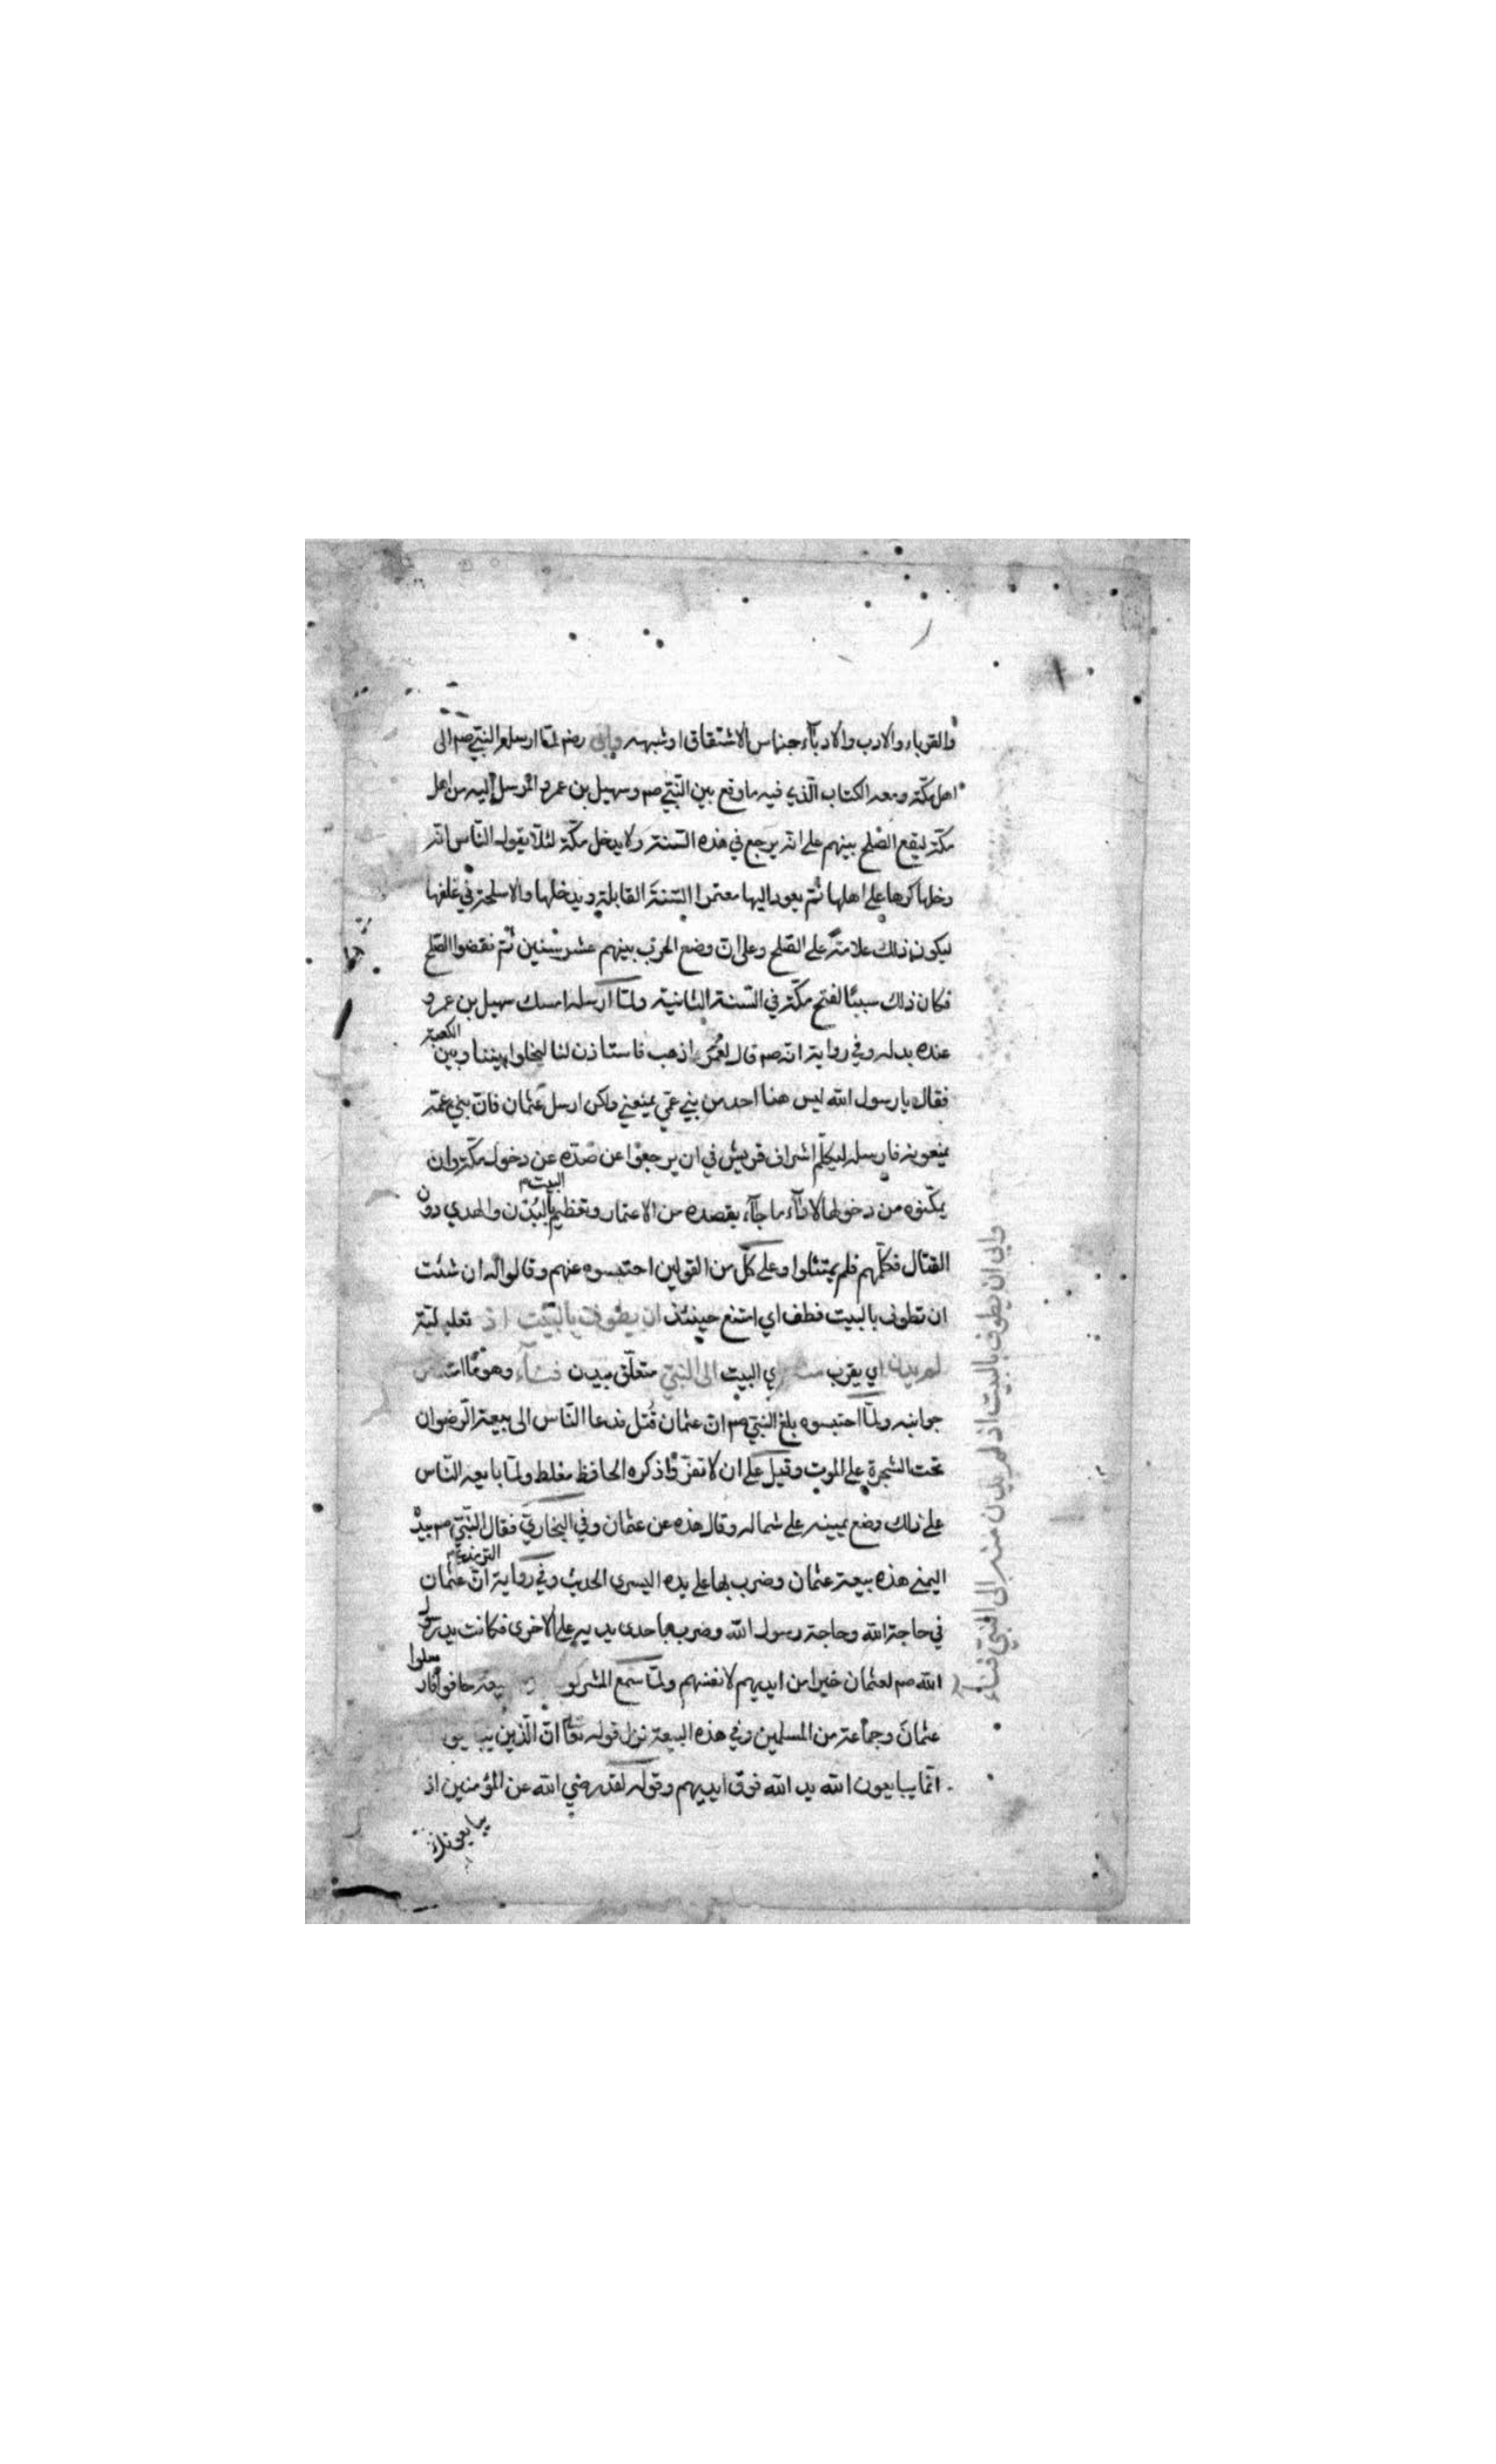 والقرباء والادب والادبآء جناس الاشتقاق او شبهه وابى رضه لمّا ارسله النبيّ صم الى
اهل مكّة ومعه الكتاب الّذي فيه ما وقع بين النّبيّ صم وسهيل بن عمرو المرسل إليه من اهل
مكّة ليقع الصّلح بينهم على انّه يرجع في هذه السّنة ولا يدخل مكّة لئلّا يقول النّاس انّه
دخلها كرها على اهلها ثمّ يعود اليها معتمرا السّنة القابلة ويدخلها والاسلحة في غلفها
ليكون ذلك علامة على الصّلح وعلى انّ وضع الحرب بينهم عشر سنين ثمّ نقضوا الصّلح
فكان ذلك سببًا لفتح مكّة في السّنة الثانية ولمّا ارسله امسك سهيل بن عمرو
عنده بدله وفي رواية انّه صم قال لعُمَر اذهب فاستاذن لنا ليخلوا بيننا وبين الكعبة
فقال يا رسول الله ليس هنا احد من بني عمّي يمنعني ولكن ارسل عثمان فانّ بني عمّه
يمنعونه فارسله ليكلّم اشراف قريش في ان يرجعوا عن صدّه عن دخول مكّة وان
يمكّنوه من دخولها لاداء ما جآء بقصده من الاعتمار وتعظيم البيت بالبُدْن والهدي دون
القتال فكلّمهم فلم يمتثلوا وعلى كلّ من القولين احتبسوه عنهم وقالوا له ان شئت
ان تطوف بالبيت فطف اي امتنع حينئذ ان يطوف بالبيت اذ تعليليّة
لم يدن اي يقرب البيت الى النبيّ متعلّق بيدن فنآء وهو ما
جوانبه ولمّا احتبسوه بلغ النبيّ صم انّ عثمان قُتل فدعا النّاس الى بيعة الرّضوان
تحت الشجرة على الموت وقيل على ان لا نفرّ وذكره الحافظ مغلط ولمّا بايعه النّاس
على ذلك وضع يمينه على شماله وقال هذه عن عثمان وفي البخاريّ فقال النّبيّ صم بيده
اليمنى هذه بيعة عثمان وضرب بها على يده اليسرى الحديث وفي رواية الترمذي انّ عثمان
في حاجة الله وحاجة رسول الله وضرب باحدى يديه على الاخرى فكانت يد رسول
الله صم لعثمان خيرا من ايديهم لانفسهم ولمّا سمع المشركو بيعة خافوا فارسلوا
عثمانَ وجماعة من المسلمين وفي هذه البيعة نزل قوله تعا انّ الّذين
انّما يبايعون الله يد الله فوق ايديهم وقوله لقد رضي الله عن المؤمنين اذ
يبايعونك
وابى ان يطوف بالبيت اذ لم يدن منه الى النبيّ فنآء